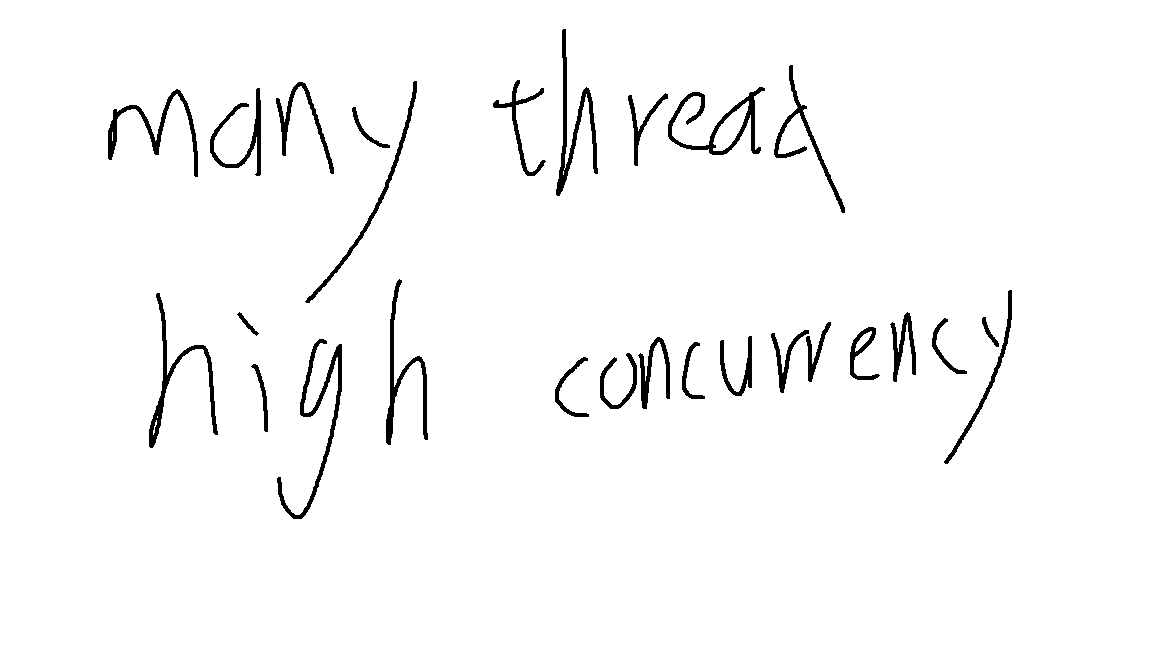 many thread
high concurrency